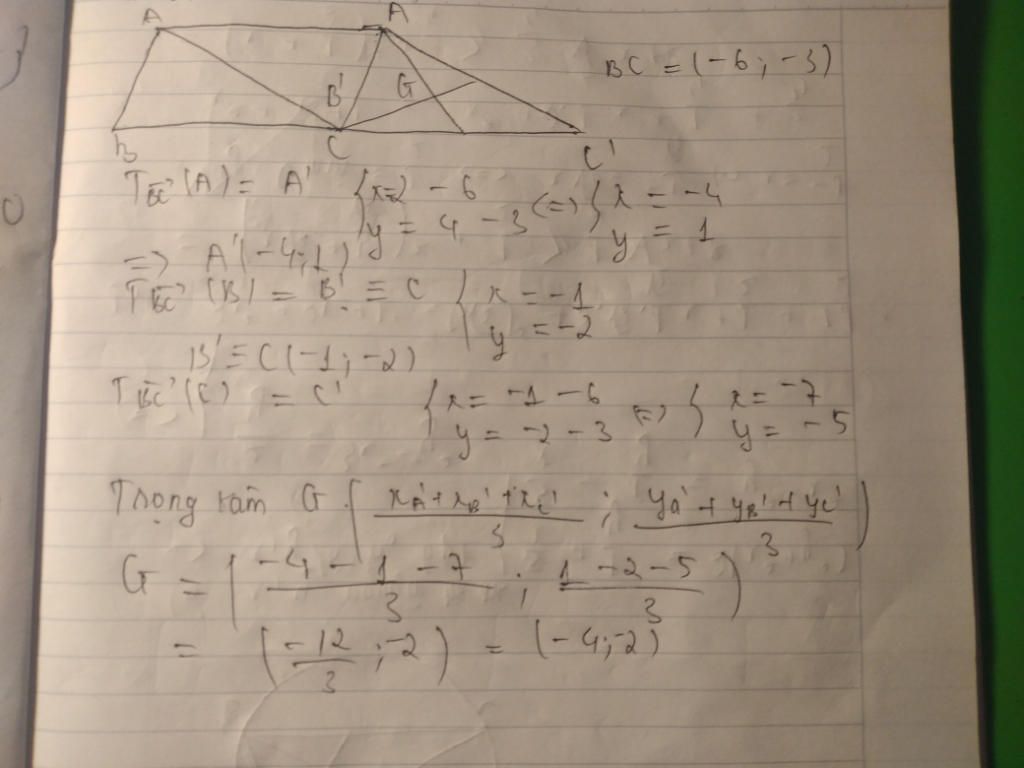 A A
BC = (-6; -3)
B' G
B C C'
T BC (A) = A' { x = 2 - 6 <=> { x = -4
y = 4 - 3 y = 1
=> A'(-4; 1)
T BC (B) = B' ≡ C { x = -1
y = -2
B' ≡ C(-1; -2)
T BC (C) = C' { x = -1 - 6 <=> { x = -7
y = -2 - 3 y = -5
Trọng tâm G ( (xA' + xB' + xC')/3 ; (yA' + yB' + yC')/3 )
G = ( (-4 - 1 - 7)/3 ; (1 - 2 - 5)/3 )
= ( -12/3 ; -2 ) = (-4; -2)